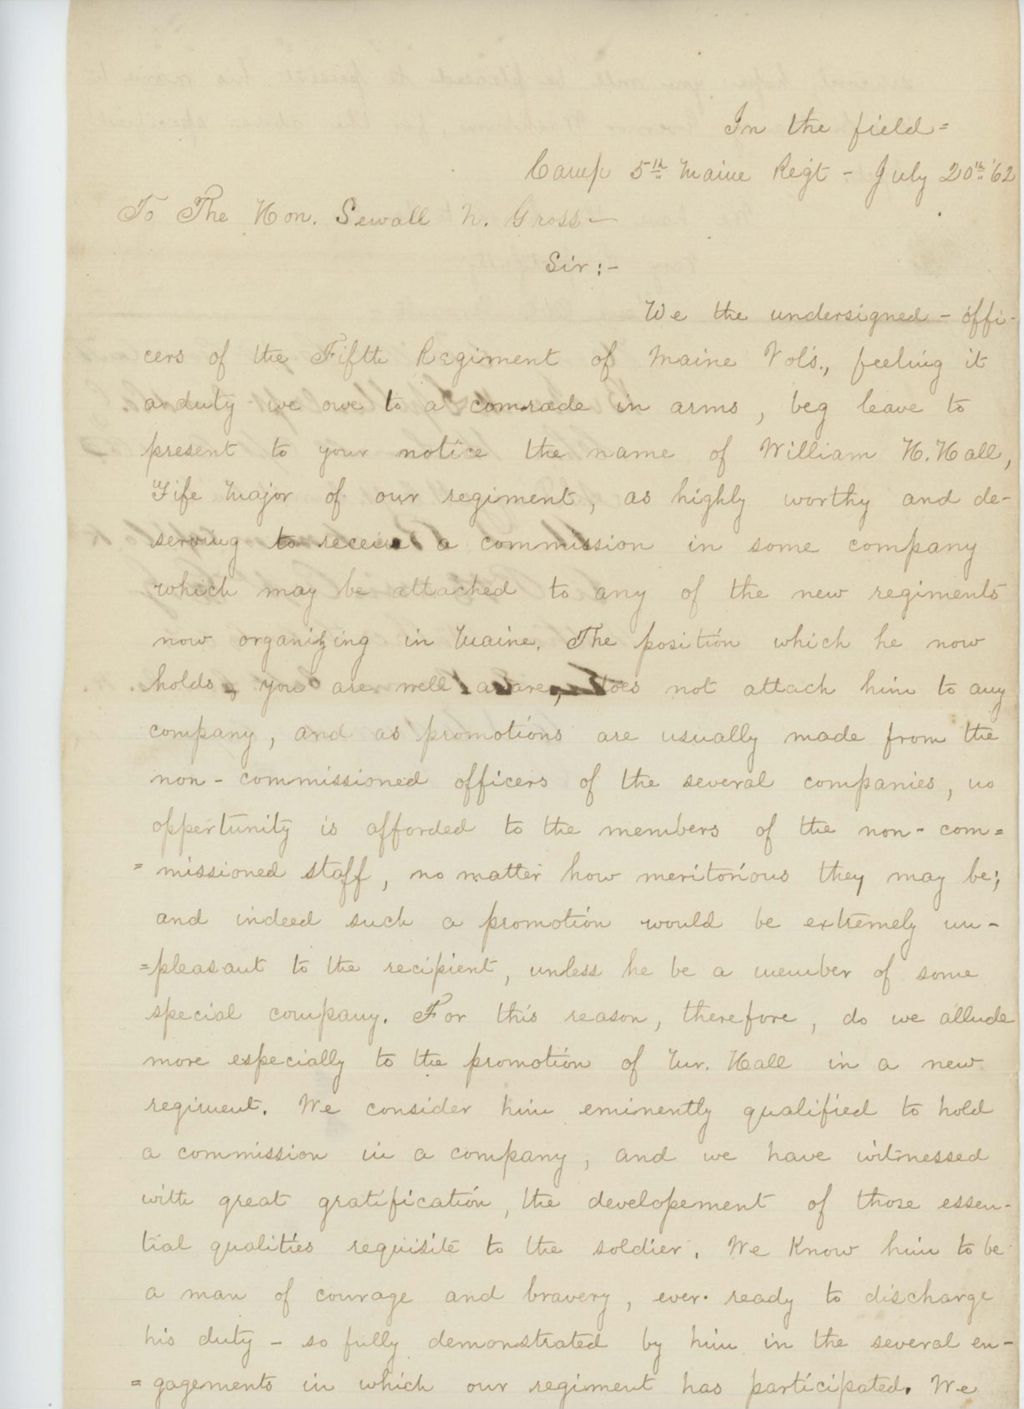 In the field =
Camp 5th Maine Regt - July 20th '62
To The Hon. Sewall N. Gross -
Sir : -
We the undersigned - offi-
cers of the Fifth Regiment of Maine Vols., feeling it
a duty we owe to a comrade in arms, beg leave to
present to your notice the name of William H. Hall,
Fife Major of our regiment, as highly worthy and de-
serving to receive a commission in some company
which may be attached to any of the new regiments
now organizing in Maine. The position which he now
holds, you are well aware, does not attach him to any
company, and as promotions are usually made from the
non - commissioned officers of the several companies, no
oppertunity is afforded to the members of the non - com =
= missioned staff, no matter how meritorious they may be;
and indeed such a promotion would be extremely un -
= pleasant to the recipient, unless he be a member of some
special company. For this reason, therefore, do we allude
more especially to the promotion of Mr. Hall in a new
regiment. We consider him eminently qualified to hold
a commission in a company, and we have witnessed
with great gratification, the developement of those essen-
tial qualities requisite to the soldier. We Know him to be
a man of courage and bravery, ever ready to discharge
his duty - so fully demonstrated by him in the several en -
= gagements in which our regiment has participated. We